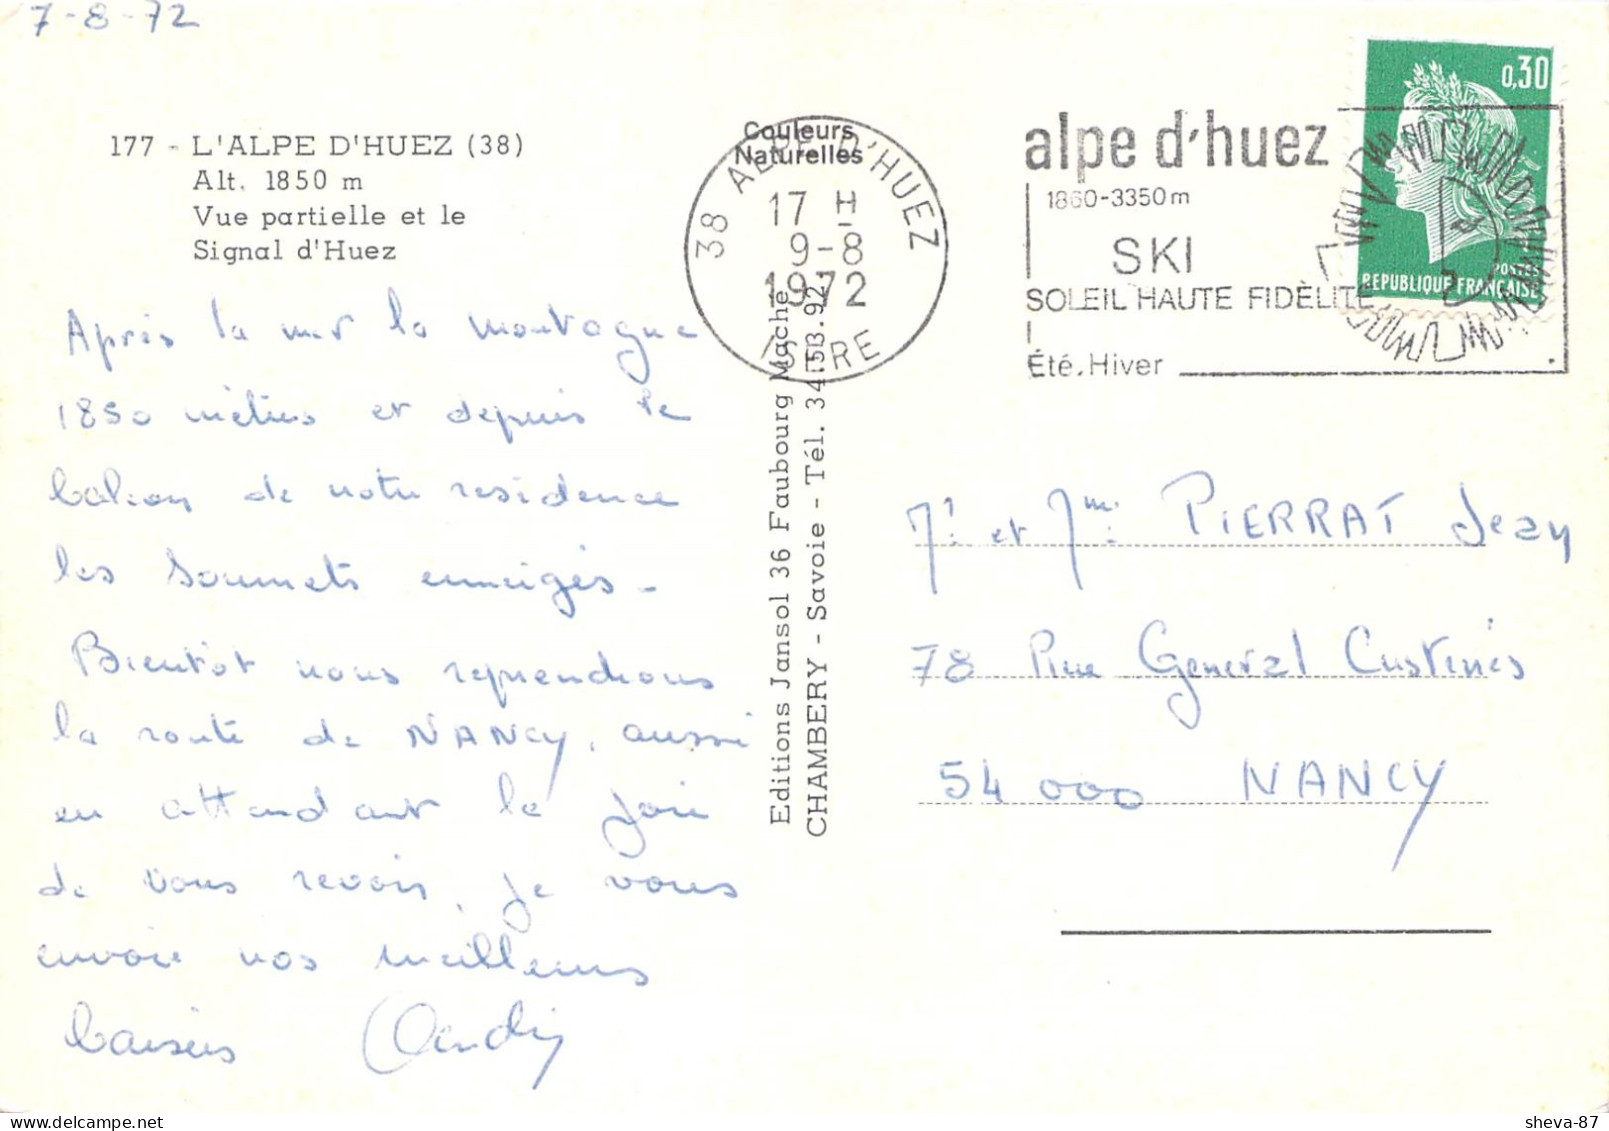 7-8-72
177 - L'ALPE D'HUEZ (38)
Alt. 1850 m
Vue partielle et le
Signal d'Huez
Après la mer la montagne
1850 mètres et depuis le
balcon de notre residence
les sommets enneigés -
Bientôt nous reprendrons
la route de NANCY, aussi
en attendant la joie
de vous revoir, je vous
envoie nos meilleurs
baisers
Couleurs
Naturelles
38 ALPE D'HUEZ
17 H
9-8
1972
ISERE
Editions Jansol 36 Faubourg Mache
CHAMBERY - Savoie - Tél. 34.53.92
alpe d'huez
1860-3350m
SKI
SOLEIL HAUTE FIDÈLITÉ
Été. Hiver
0,30
POSTES
REPUBLIQUE FRANÇAISE
Mr et Mme PIERRAT Jean
78 Rue General Custines
54000 NANCY
sheva-87